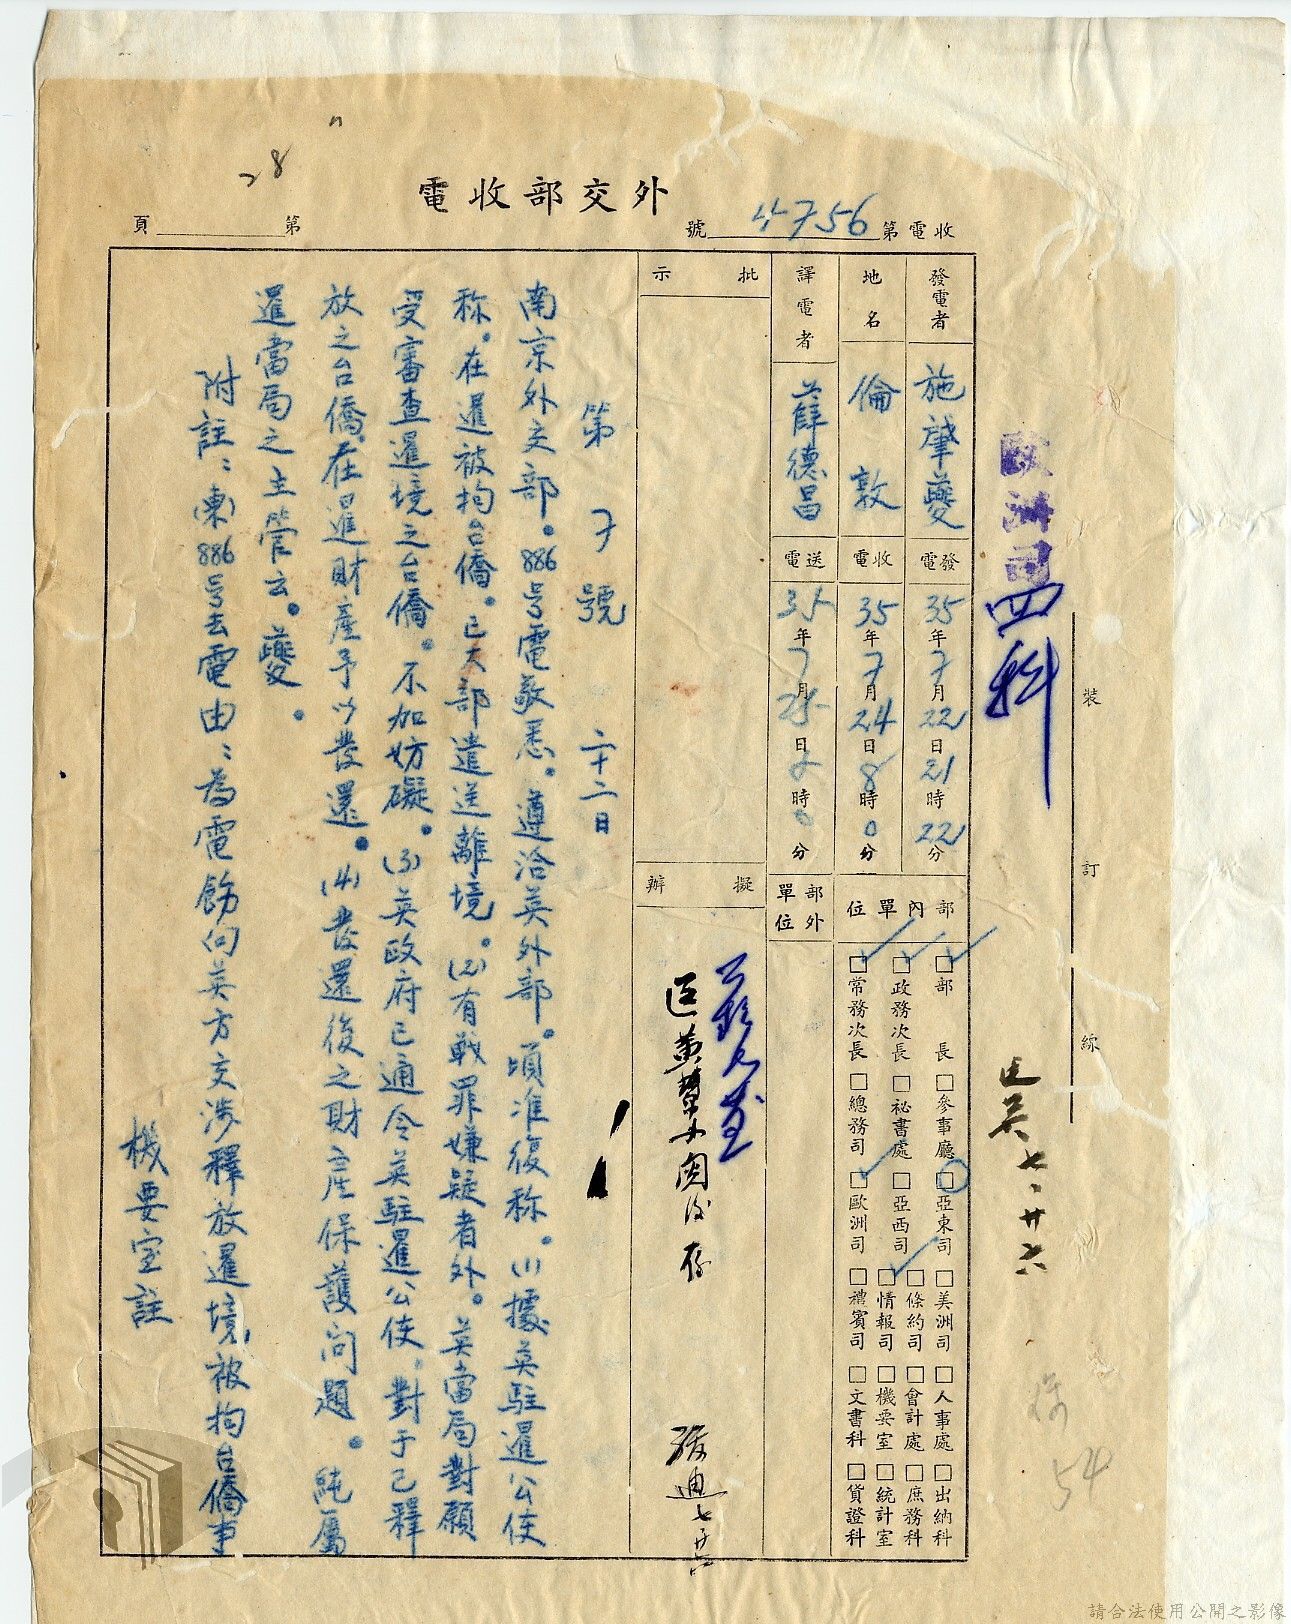 外交部收電
收電第4756號
第28頁
發電者 施肇夔
地名 倫敦
譯電者 薛德昌
發電 35年7月22日21時22分
收電 35年7月24日8時0分
送電 35年7月25日 時0分
部內單位
部外單位
□部長 □參事廳 □亞東司 □美洲司 □人事處 □出納科
□政務次長 □祕書處 □亞西司 □條約司 □會計處 □庶務科
□情報司 □機要室 □統計室
□常務次長 □總務司 □歐洲司 □禮賓司 □文書科 □貨證科
批示
擬辦
第7號 二十二日
南京外交部。886号電敬悉。遵洽英外部。頃准復称。(1)據英駐暹公使
称。在暹被拘台僑。已大部遣送離境。(2)有戰罪嫌疑者外。英當局對願
受審查暹境之台僑。不加妨礙。(3)英政府已通令英駐暹公使。對于已釋
放之台僑在暹財產予以發還。(4)發還後之財產保護問題。純屬
暹當局之主管云。夔。
附註：(東)886号去電由：為電飭向英方交涉釋放暹境被拘台僑事
機要室註
歐洲司
四科
裝訂線
七、廿六
54
請合法使用公開之影像